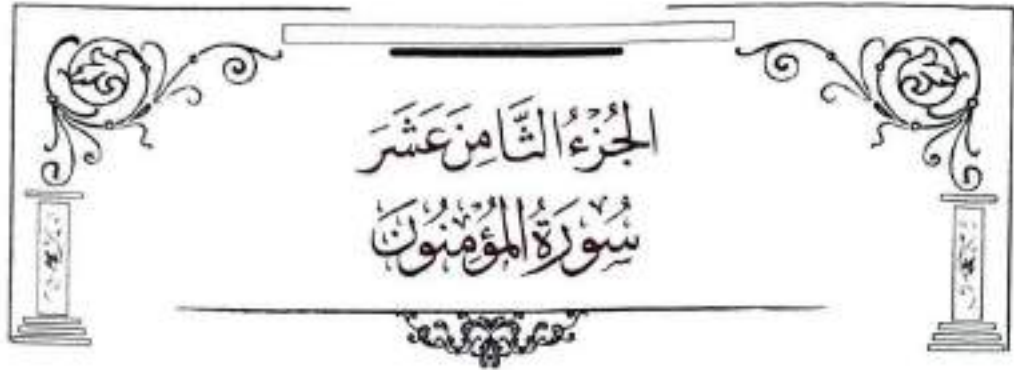 الجُزْءُ الثَّامِنَ عَشَرَ
سُورَةُ المُؤْمِنُونَ